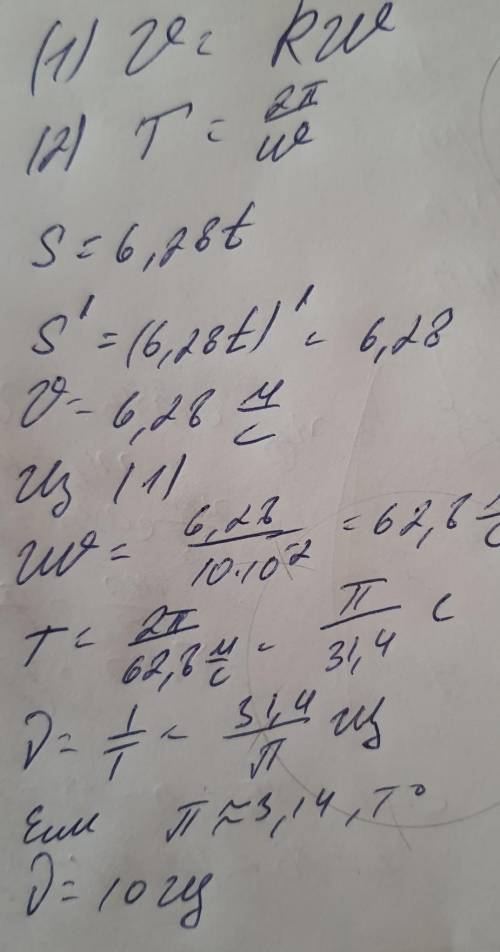 (1) v = Rω
(2) T = 2π/ω
S = 6,28t
S' = (6,28t)' = 6,28
v = 6,28 м/с
Из (1)
ω = 6,28/(10·10^-2) = 62,8 1/с
T = 2π/(62,8 м/с) = π/31,4 с
ν = 1/T = 31,4/π Гц
Если π ≈ 3,14, то
ν = 10 Гц